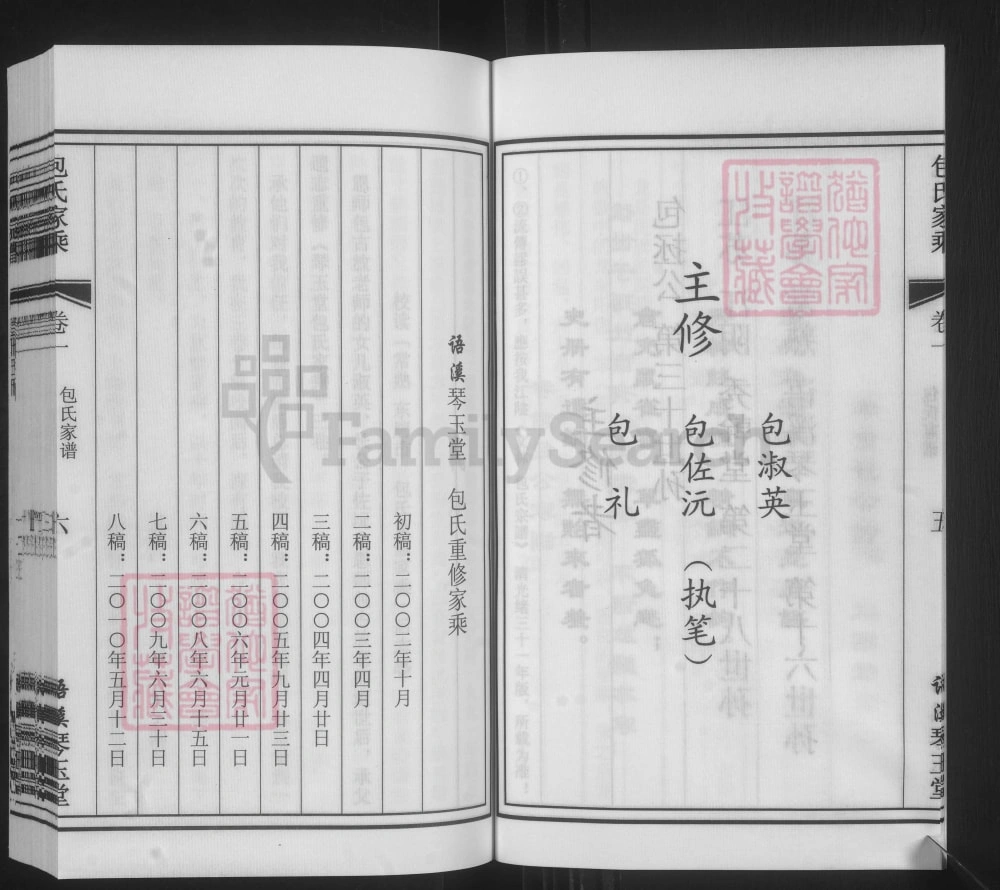 包氏家乘
卷一
五
语溪琴玉堂
猶他家
譜學會
收藏
主修
包淑英
包佐沅 （执笔）
包礼
语溪琴玉堂 包氏重修家乘
初稿：二〇〇二年十月
二稿：二〇〇三年四月
三稿：二〇〇四年四月廿日
四稿：二〇〇五年九月廿三日
五稿：二〇〇六年元月廿一日
六稿：二〇〇八年六月十五日
七稿：二〇〇九年六月三十日
八稿：二〇一〇年五月十二日
猶他家
譜學會
收藏
包氏家乘
卷一
包氏家谱
六
语溪琴玉堂
FamilySearch